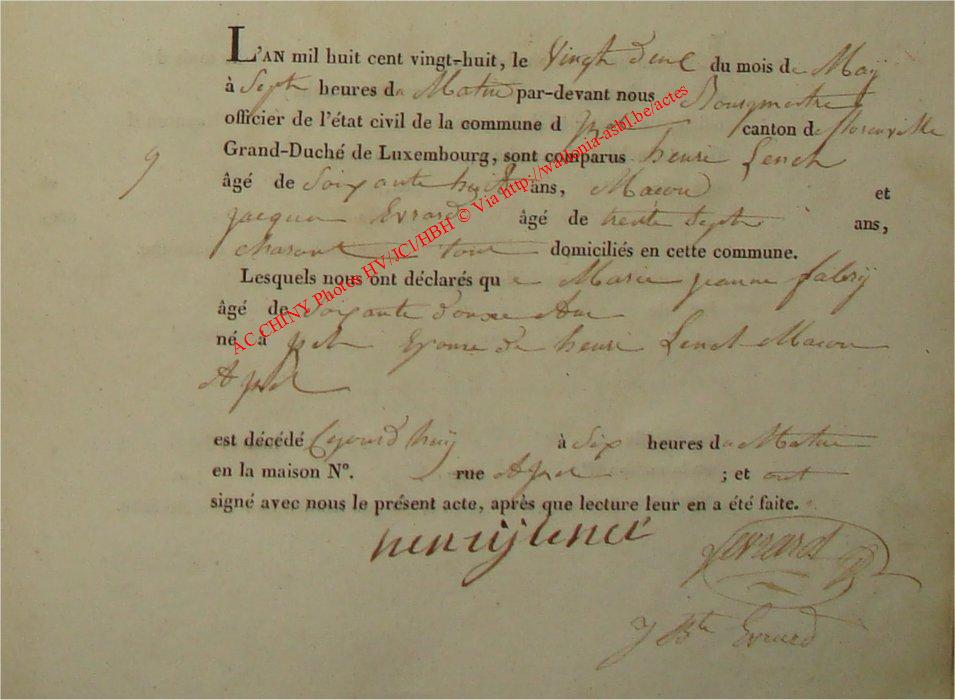 L'AN mil huit cent vingt-huit, le Vingt deux du mois de Maÿ
à Sept heures du Matin par-devant nous Bourgmestre
officier de l'état civil de la commune d canton de florenville
9 Grand-Duché de Luxembourg, sont comparus henri Lench
âgé de Soixante huit ans, Macon et
jacque Evrard âgé de trente Sept ans,
tout domiciliés en cette commune.
Lesquels nous ont déclarés que Marie jeanne fabrÿ
âgé de Soixante douxe An
né à Epouse de henri Lench Macon
A
est décédé huÿ à Six heures du Matin
en la maison N°. rue A ; et ont
signé avec nous le présent acte, après que lecture leur en a été faite.
Evrard
J Bte Evrard
AC CHINY Photos HV/JCl/HBH © Via http://wallonia-asbl.be/actes